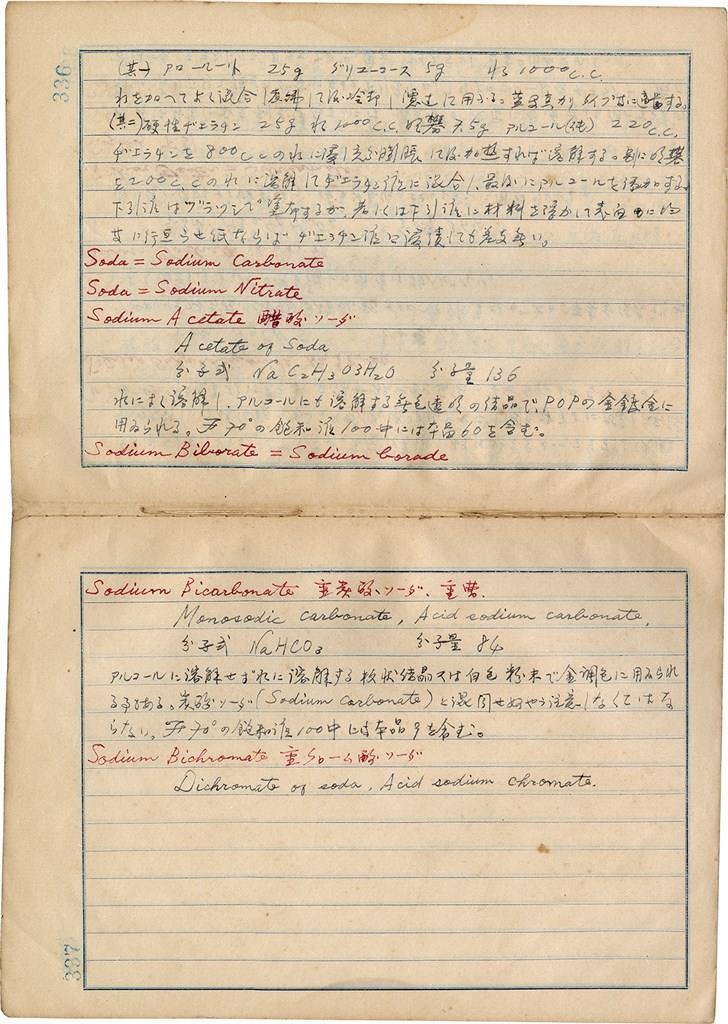 336
(其一) アロールート 25g グリューコース 5g 水 1000c.c.
水を加へてよく混合し煮沸して後冷却し濾過に用ふる。
(其二) 硬性ゼエラチン 25g 水 1000c.c. 明礬 7.5g アルコール(純) 220c.c.
ゼエラチンを 800c.c の水に浸し充分膨脹して後加熱すれば溶解する。別に明礬
を200c.cの水に溶解してゼエラチン液に混合し最後にアルコールを添加する。
下引液はブラッシで塗布するか、若しくは下引液に材料を浮かして表面に均
ゼエラチン液に浸漬しても差支無い。
Soda = Sodium Carbonate
Soda = Sodium Nitrate
Sodium Acetate 醋酸ソーダ
Acetate of Soda
分子式 NaC2H3O3H2O 分子量 136
水によく溶解し、アルコールにも溶解する無色透明の結晶で、POPの金鍍金に
用ゐられる。F70°の飽和液100中には本品60を含む。
Sodium Biborate = Sodium borade
Sodium Bicarbonate 重炭酸ソーダ、重曹.
Monosodic carbonate, Acid sodium carbonate,
分子式 NaHCO3 分子量 84
アルコールに溶解せず水に溶解する粒状結晶又は白色粉末で金調色に用ゐられ
る事がある。炭酸ソーダ(Sodium carbonate)と混同せぬやう注意しなくてはな
らない。F70°の飽和液100中には本品9を含む。
Sodium Bichromate 重クローム酸ソーダ
Dichromate of soda, Acid sodium chromate.
337